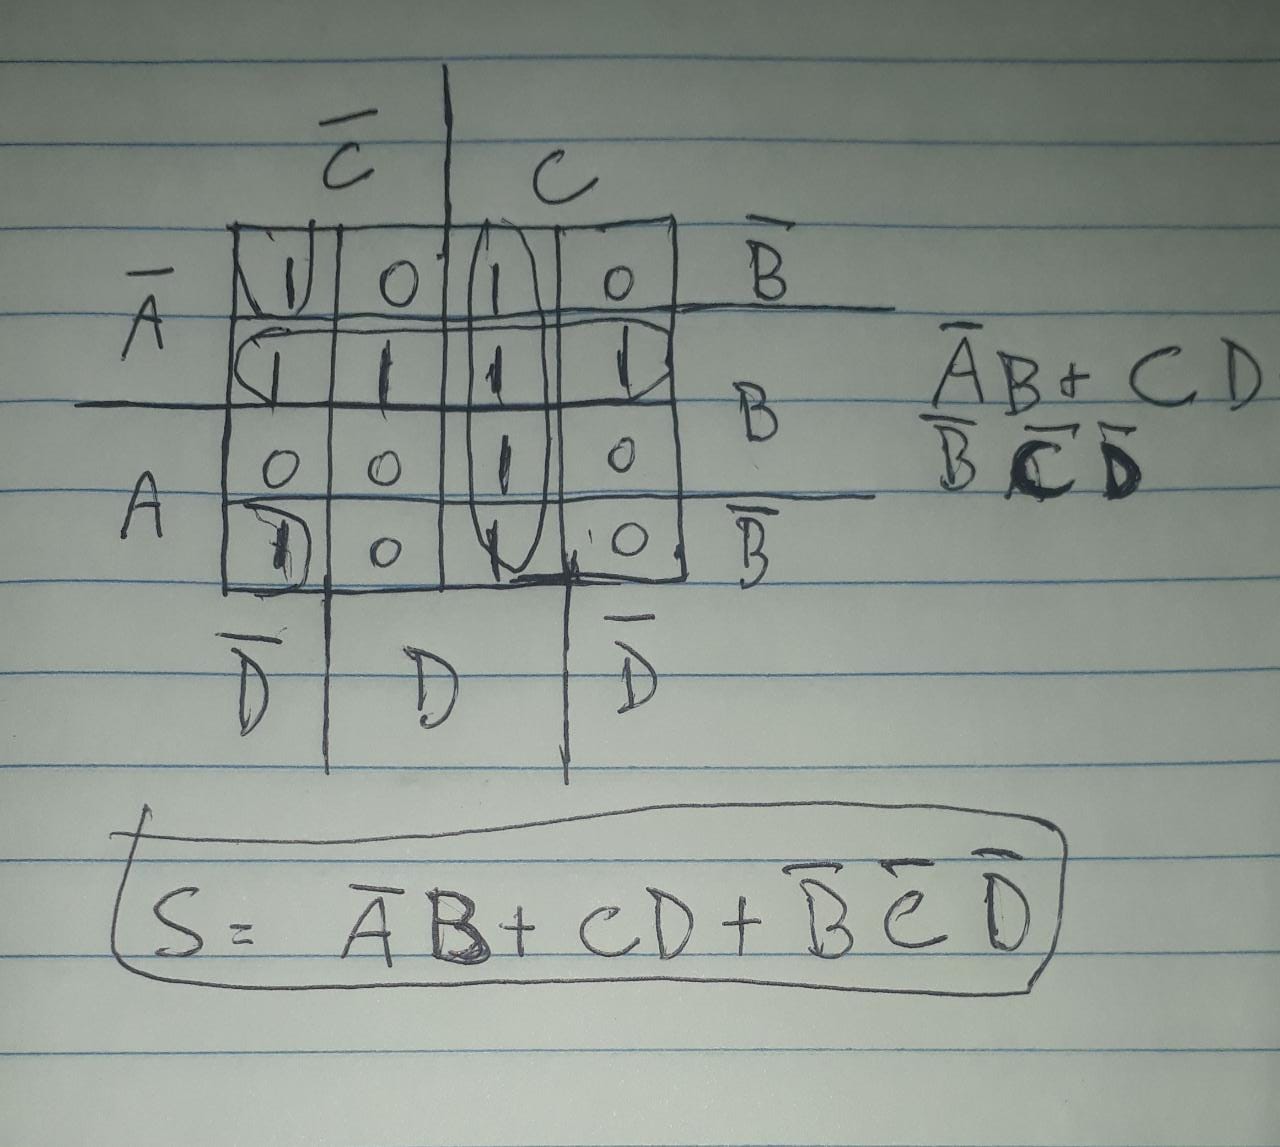 C̅ C
A̅ 1 0 1 0 B̅
1 1 1 1 B
A 0 0 1 0
1 0 1 0 B̅
D̅ D D̅
A̅ B + C D
B̅ C̅ D̅
S = A̅ B + C D + B̅ C̅ D̅